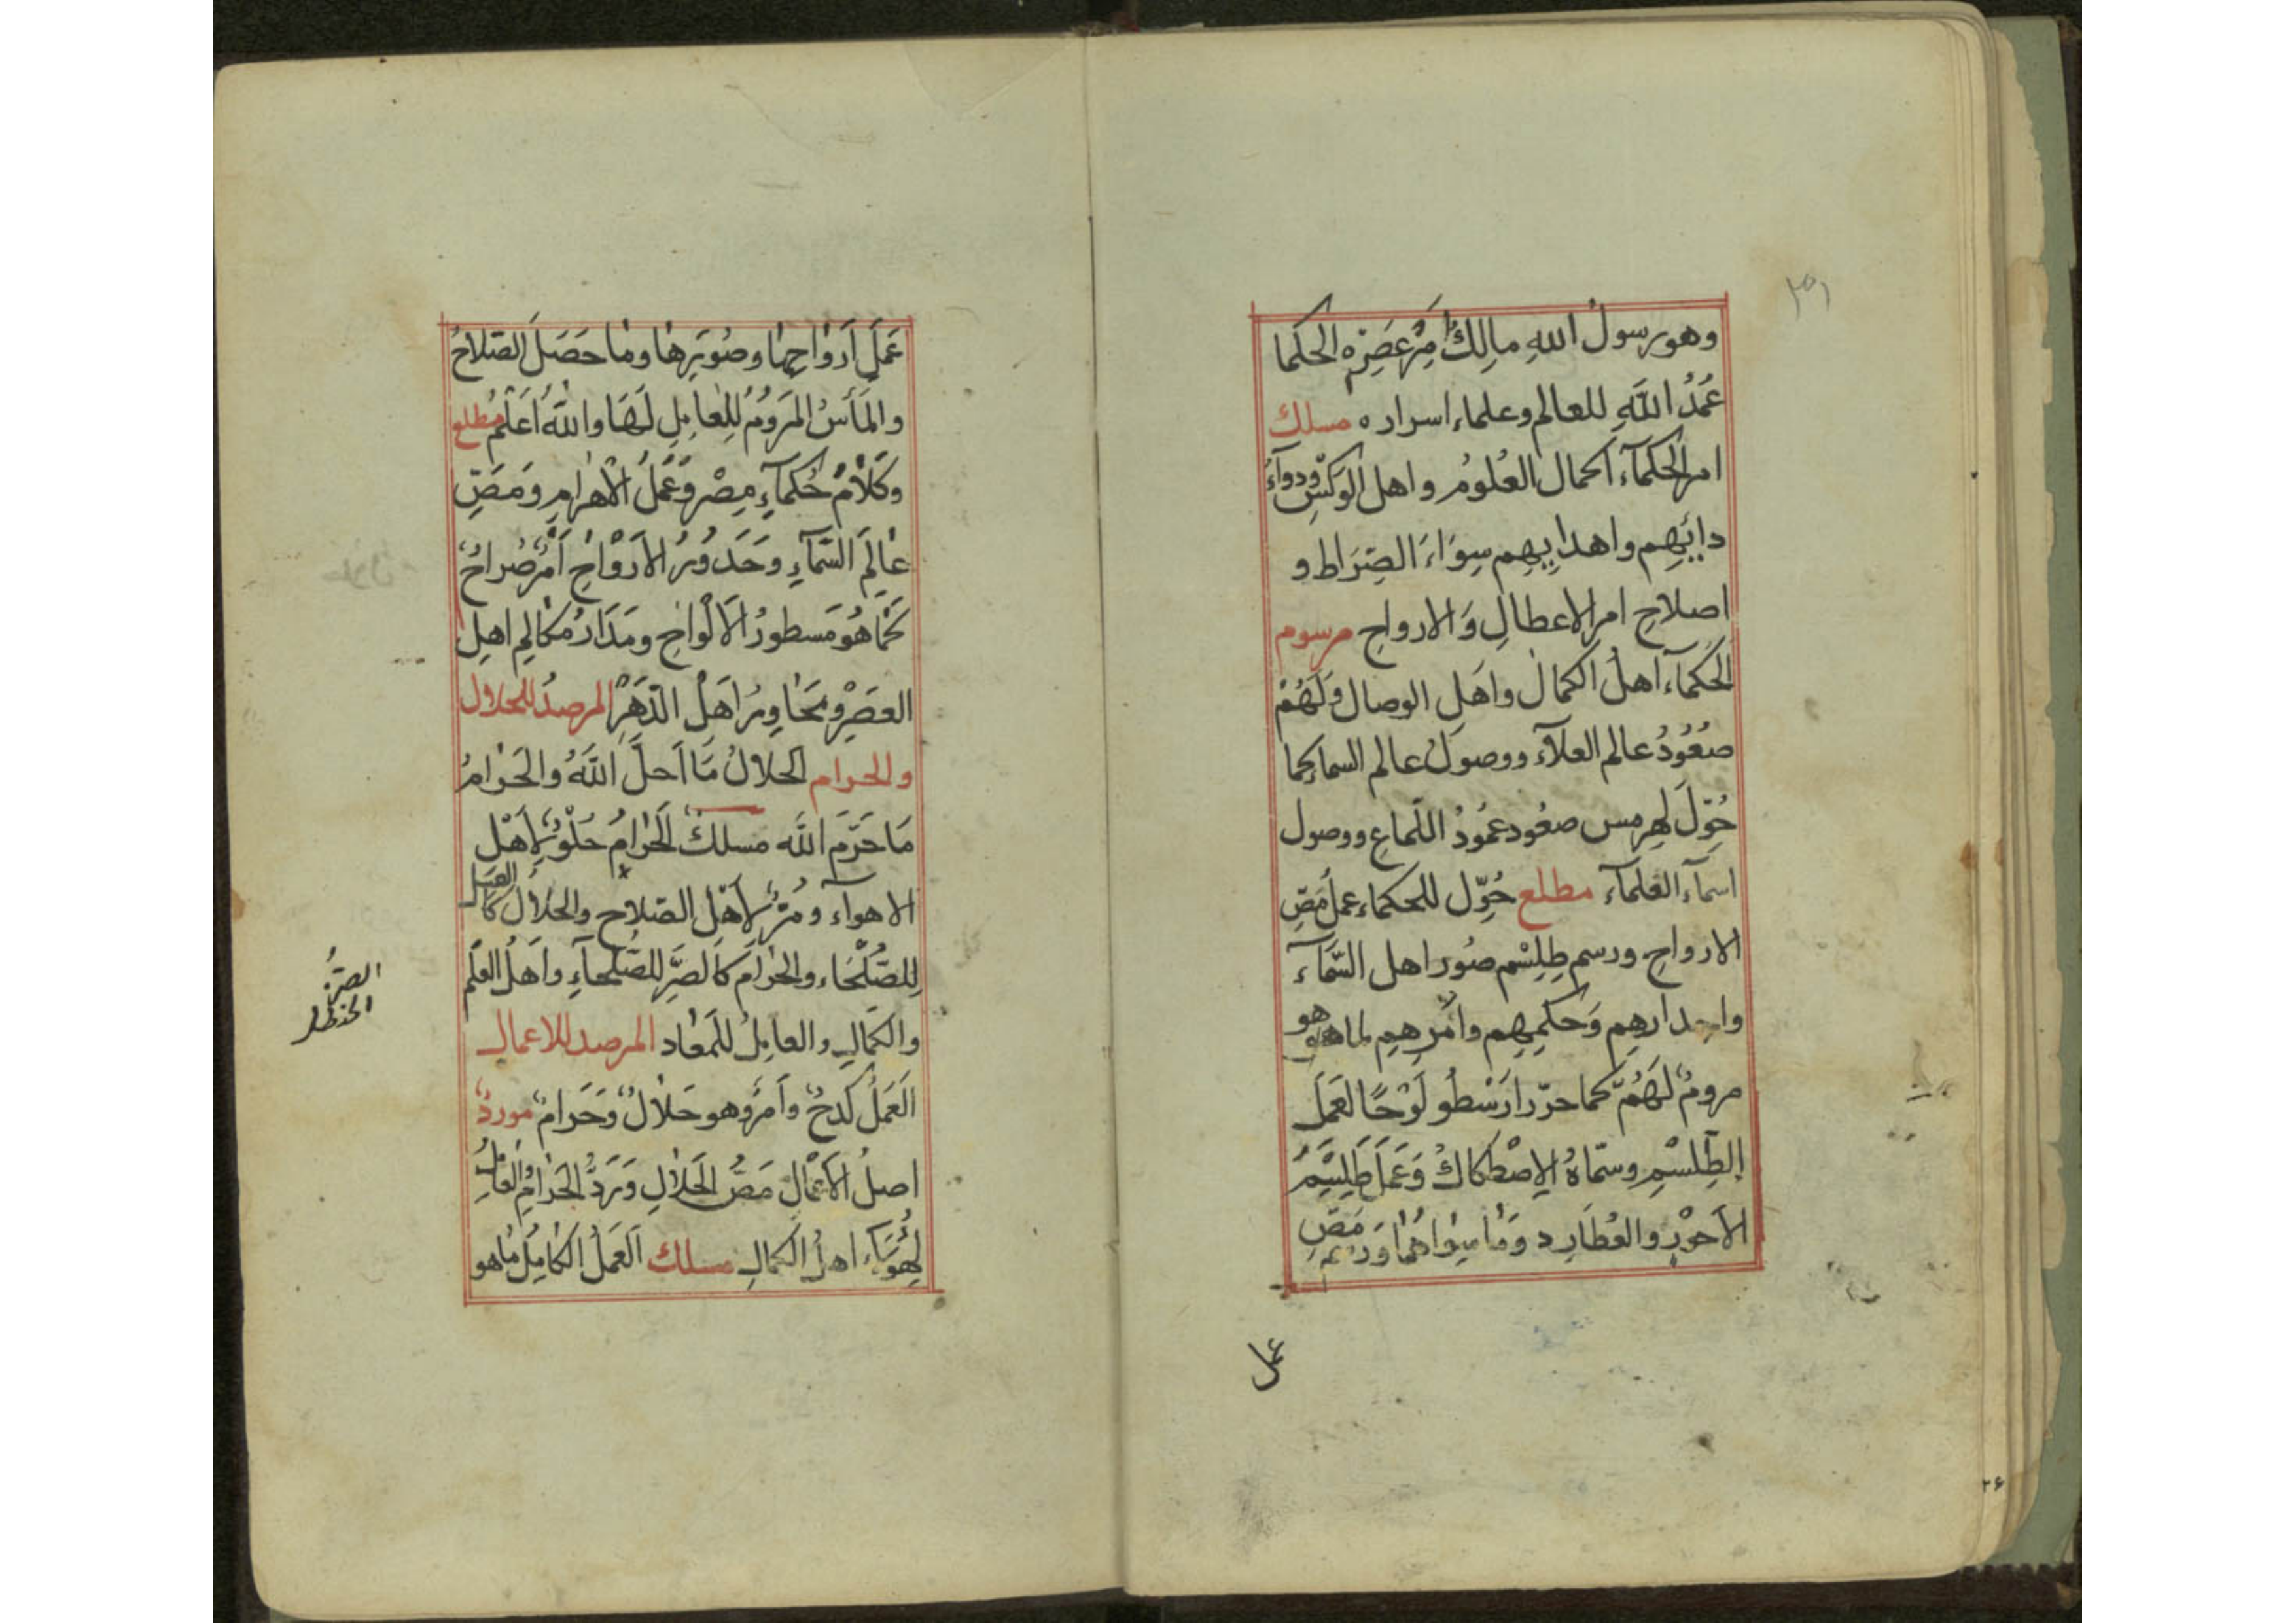 وهو رسول اللهِ مالِكُ اَمرِ عَصرِه الحكما
عُمَدُ اللَّهِ للعالم وعلماء اسراره مسلك
امر الحكمآء اكمال العُلُومُ واهل الوَكسِ ودوآءُ
دائِهِم واهدابهِم سِوَاءَ الصِّرَاط و
اصلاحِ امر الاعطالِ وَالارواحِ مرسوم
الحُكمآء اهلُ الكمال واهل الوصال ولَهُم
صُعُودُ عالم العلآء ووصولُ عالم السماء كما
حُوِّلَ لهِرمس صعُود عمُودُ اللّماعِ ووصول
اسمآء العلمآء مطلع حُوِّل للحكماء عملُ مَصِّ
الارواحِ ورسم طِلِسْم صُور اهل السَّمآء
وامدارهِم وَحكمِهِم وامرهِم لما هو
مرومٌ لَهُمْ كما حرّر ارَسْطو لَوْحًا لعَمَل
الطِّلِسْمِ وسمّاهُ الاِصْطكاكُ وَعَمَل طِلِسْمِ
الاَحْوَر والعُطَارِد ومَصِّ
عمل
عَمَل اَرْوَاحِهَا وصُوَرِهَا وما حَصَلَ الصّلاحُ
والمَأسُ المَرومُ للعامِلِ لَهَا واللّهُ اَعْلَمُ مطلع
وكَلَامُ حُكمآءِ مِصْر وعَمَلُ الاَهرامِ ومَصِّ
عالَمِ السَّمآءِ وحَدورُ الاَرْواحِ اَمْرٌ صُراحٌ
كَما هُوَ مَسطورُ الاَلْواحِ ومَدَارُ مكالمِ اهلِ
العَصْرِ ومحَاوِرُ اَهْلِ الدَّهْرِ المرصدُ للحلال
والحرام الحلالُ مَا اَحلَّ اللَّهُ والحَرَامُ
مَا حَرَّمَ اللَّه مسلكٌ الحَرَامُ حُلْوٌ لِاَهْلِ
الاهوآء ومُرٌّ لِاَهْل الصّلاحِ والحَلَالُ كالعسل
لِلصُّلَحَاء والحَرَامُ كالصَّبِرِ للصُّلَحآءِ واَهلُ العِلْمِ
والكَمالِ والعامِلُ للمَعَاد المرصد للاعمال
اَلعَمَلُ كَدحٌ واَمرٌ وهو حَلَالٌ وَحَرَامٌ موردٌ
اصلُ الاَعْمال مَصُّ الحَلَالِ وَرَدُّ الحَرَامِ والعامل
لهؤلَآء اهلُ الكمالِ مسلك اَلعَمَلُ الكامِلُ ما هو
الصبرُ
الحنظل